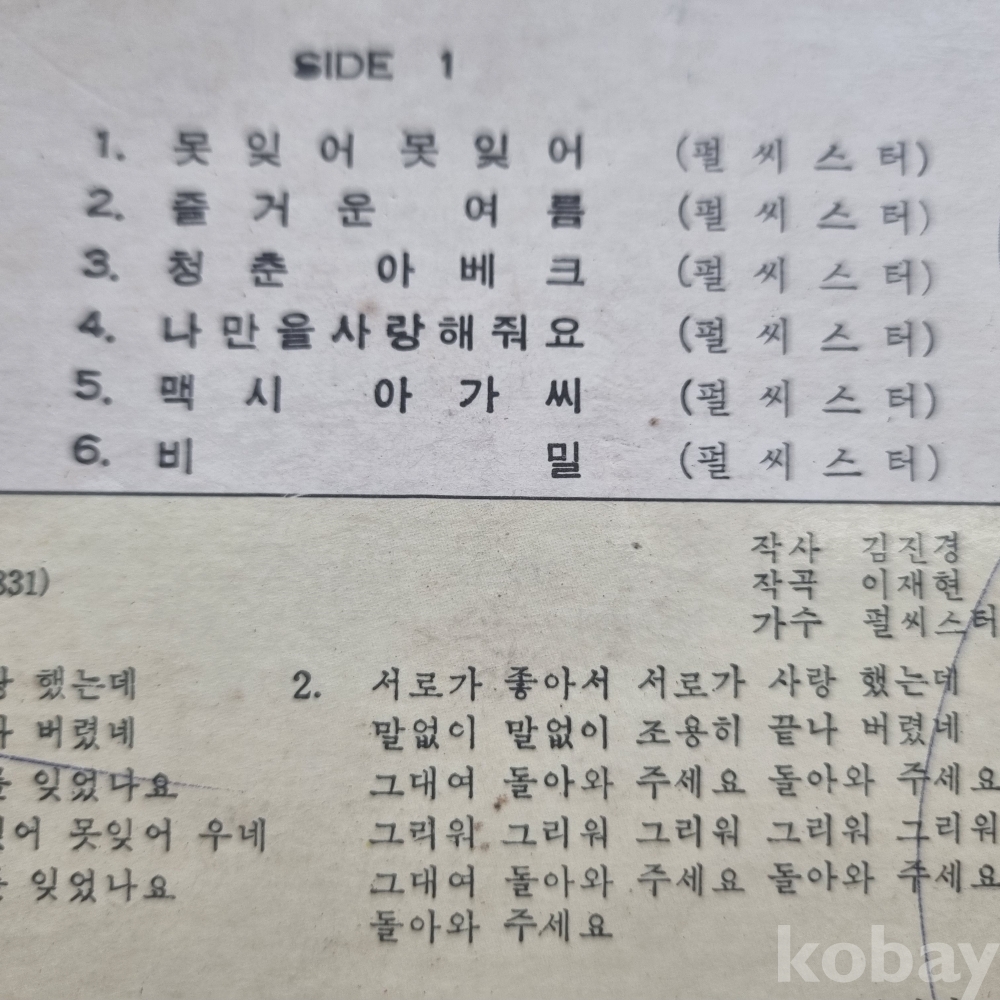 SIDE 1
1. 못잊어못잊어 (펄씨스터)
2. 즐거운 여름 (펄씨스터)
3. 청춘 아베크 (펄씨스터)
4. 나만을사랑해줘요 (펄씨스터)
5. 맥시 아가씨 (펄씨스터)
6. 비밀 (펄씨스터)
작사 김진경
831)
작곡 이재현
가수 펄씨스터
했는데
버렸네
잊었나요
못잊어 우네
잊었나요
2. 서로가 좋아서 서로가 사랑 했는데
말없이 말없이 조용히 끝나 버렸네
그대여 돌아와 주세요 돌아와 주세요
그리워 그리워 그리워 그리워 그리워
그대여 돌아와 주세요 돌아와 주세요
돌아와 주세요
kobay